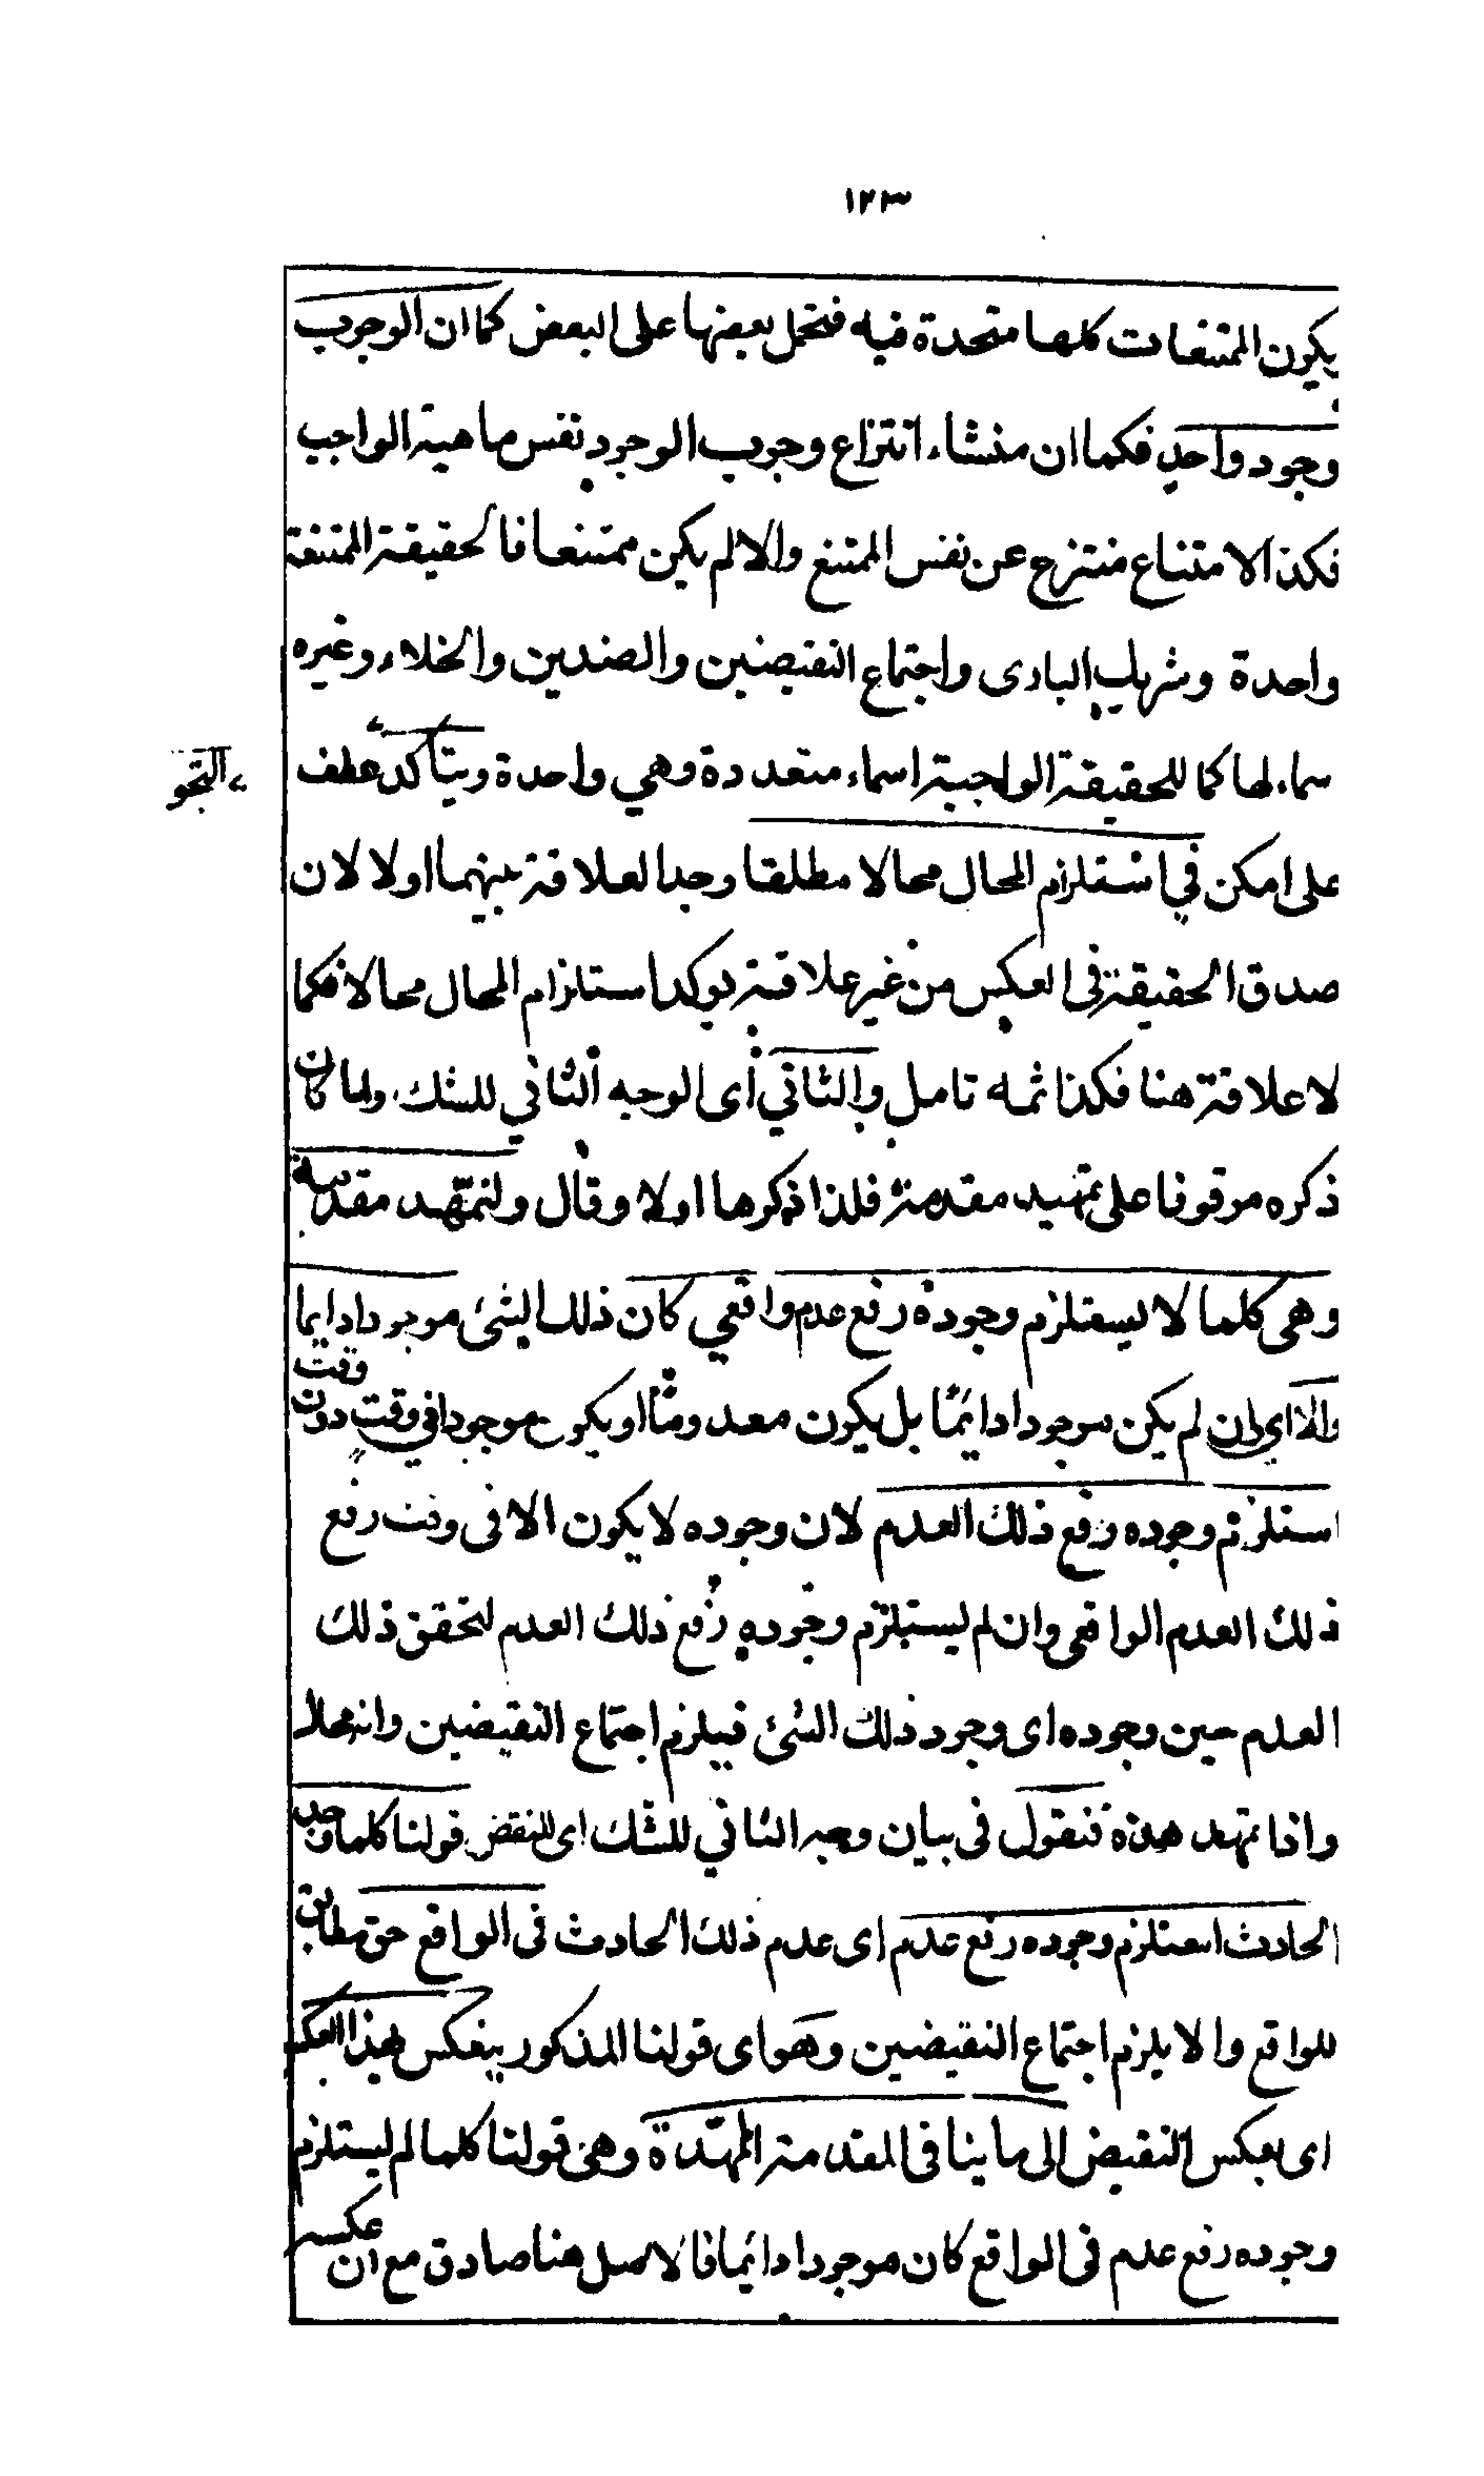 ١٢٣
يكون الممتنعات كلها متحدة فيه فتحمل بعضها على البعض كما ان الوجوب
وجود واحد فكما ان منشاء انتزاع وجوب الوجود نفس ماهية الواجب
فكذا الامتناع منتزع عن نفس الممتنع والا لم يكن ممتنعا فالحقيقة الممتنعة
واحدة وشريك البارى واجتماع النقيضين والضدين والخلاء وغيره
سماء لها كما للحقيقة الواجبية اسماء متعددة وهي واحدة ويتأكد عطف
التجو
على امكن في استلزام المحال محالا مطلقا وجدا لعلاقة بينهما اولا لان
صدق الحقيقة فى العكس من غير علاقة يوكد استلزام المحال محالا فكما
لا علاقة هنا فكذا ثمه تامل والثاني أى الوجه الثاني للشك ولما كان
ذكره موقوفا على تمهيد مقدمة فلذا ذكرها اولا وقال ولنمهد مقدمة
وهى كلما لا يستلزم وجوده رفع عدم واقعي كان ذلك الشئ موجودا دايما
والا اى ان لم يكن موجودا دائما بل يكون معدوما او يكون موجودا فى وقت دون وقت
استلزم وجوده رفع ذلك العدم لان وجوده لا يكون الا فى وقت رفع
ذلك العدم الواقعى وان لم يستلزم وجوده رفع ذلك العدم لتحقق ذلك
العدم حين وجوده اى وجود ذلك الشئ فيلزم اجتماع النقيضين وانه محال
واذا تمهد هذه فنقول فى بيان وجه الثاني للشك اى للنقض قولنا كلما وجد
الحادث استلزم وجوده رفع عدم اى عدم ذلك الحادث فى الواقع حق مطابق
للواقع والا يلزم اجتماع النقيضين وهو اى قولنا المذكور ينعكس بهذا العكس
اى بعكس النقيض الى ما ينافى المقدمة الممهدة وهى قولنا كلما لم يستلزم
وجوده رفع عدم فى الواقع كان موجودا دائما فالاصل هنا صادق مع ان عكسه